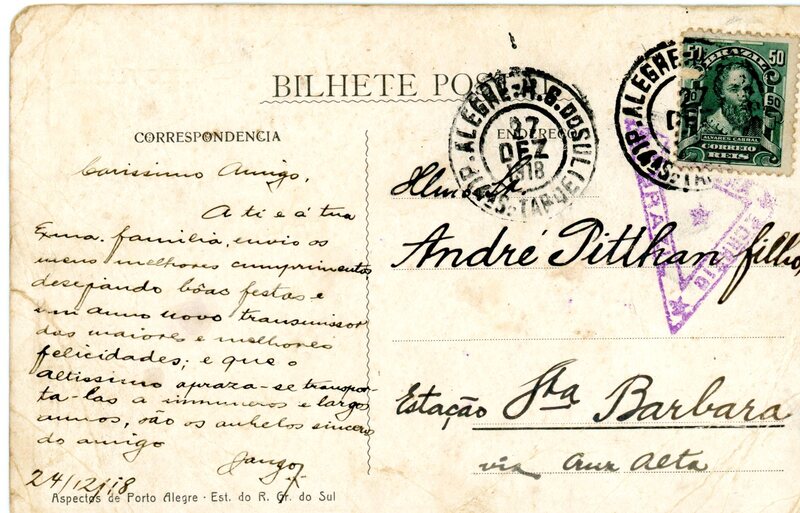 BILHETE POS
CORRESPONDENCIA
Carissimo Amigo,
A ti e á tua
Exma. familia, envio os
meus melhores cumprimentos,
desejando bôas festas e
um anno novo transmissor
das maiores e melhores
felicidades; e que o
Altissimo apraza-se transpor-
ta-las a innumeros e largos
annos, são os anhelos sinceros
do amigo
Jango
24/12/18
Aspectos de Porto Alegre - Est. do R. Gr. do Sul
ENDEREÇO
André Pitthan filho,
Estação Sta Barbara
via Cruz Alta
P. ALEGRE. R. G. DO SUL
27
DEZ
1918
TARDE
P. ALEGRE
27
50 50
BRAZIL
ALVARES CABRAL
CORREIO
REIS